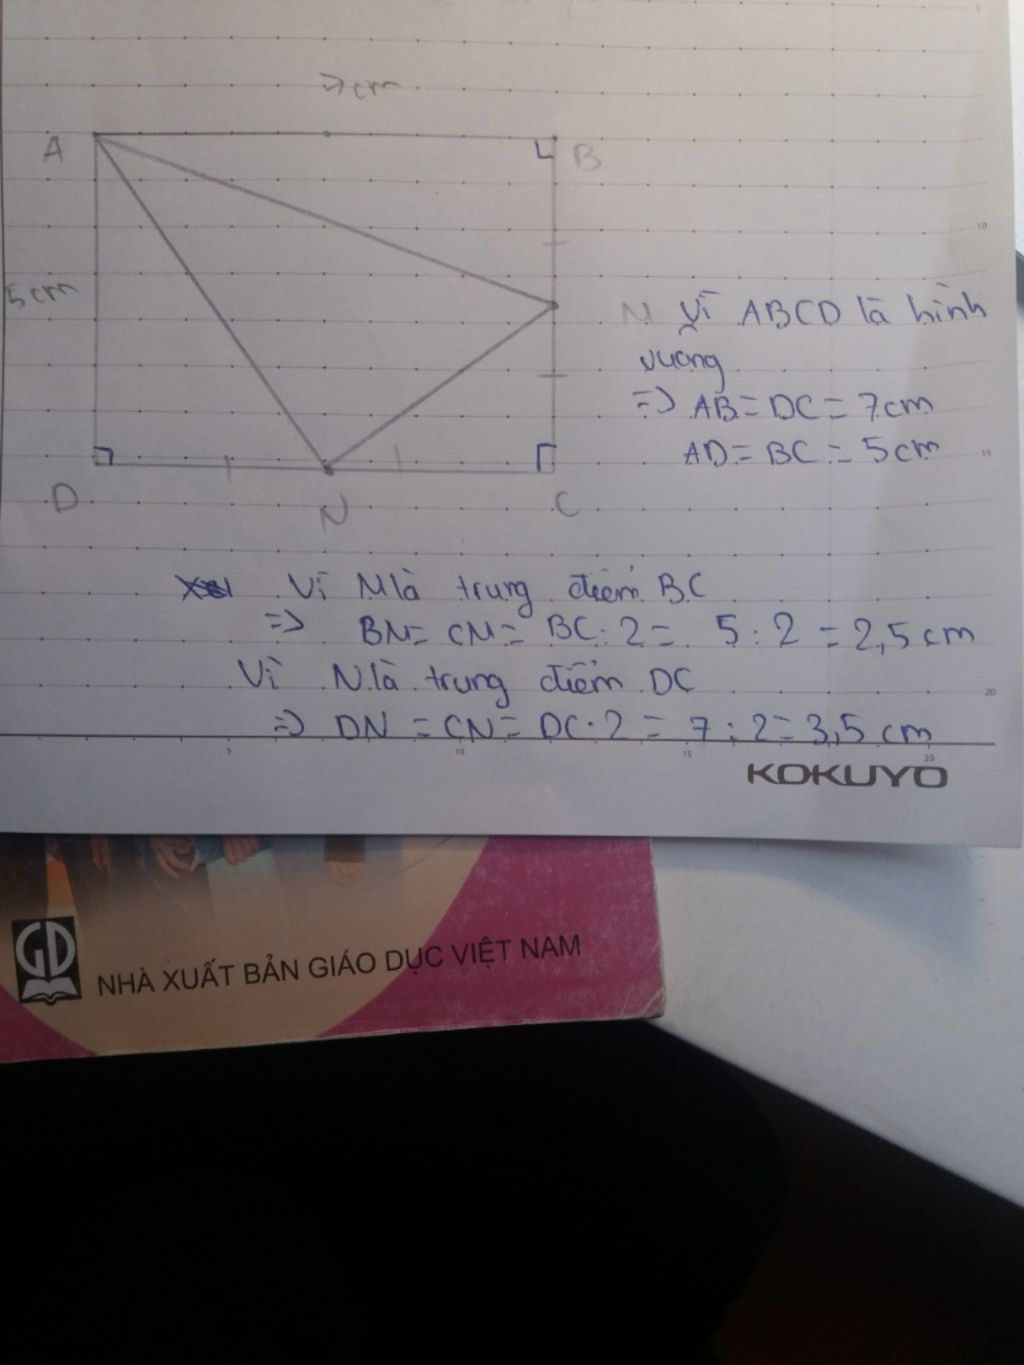 7cm
A
B
5cm
M Vì ABCD là hình
vuông
=> AB = DC = 7cm
AD = BC = 5cm
D
N
C
Vì M là trung điểm BC
=> BM = CM = BC : 2 = 5 : 2 = 2,5 cm
Vì N là trung điểm DC
=> DN = CN = DC : 2 = 7 : 2 = 3,5 cm
5
10
15
20
5
10
15
20
KOKUYO
GD
NHÀ XUẤT BẢN GIÁO DỤC VIỆT NAM